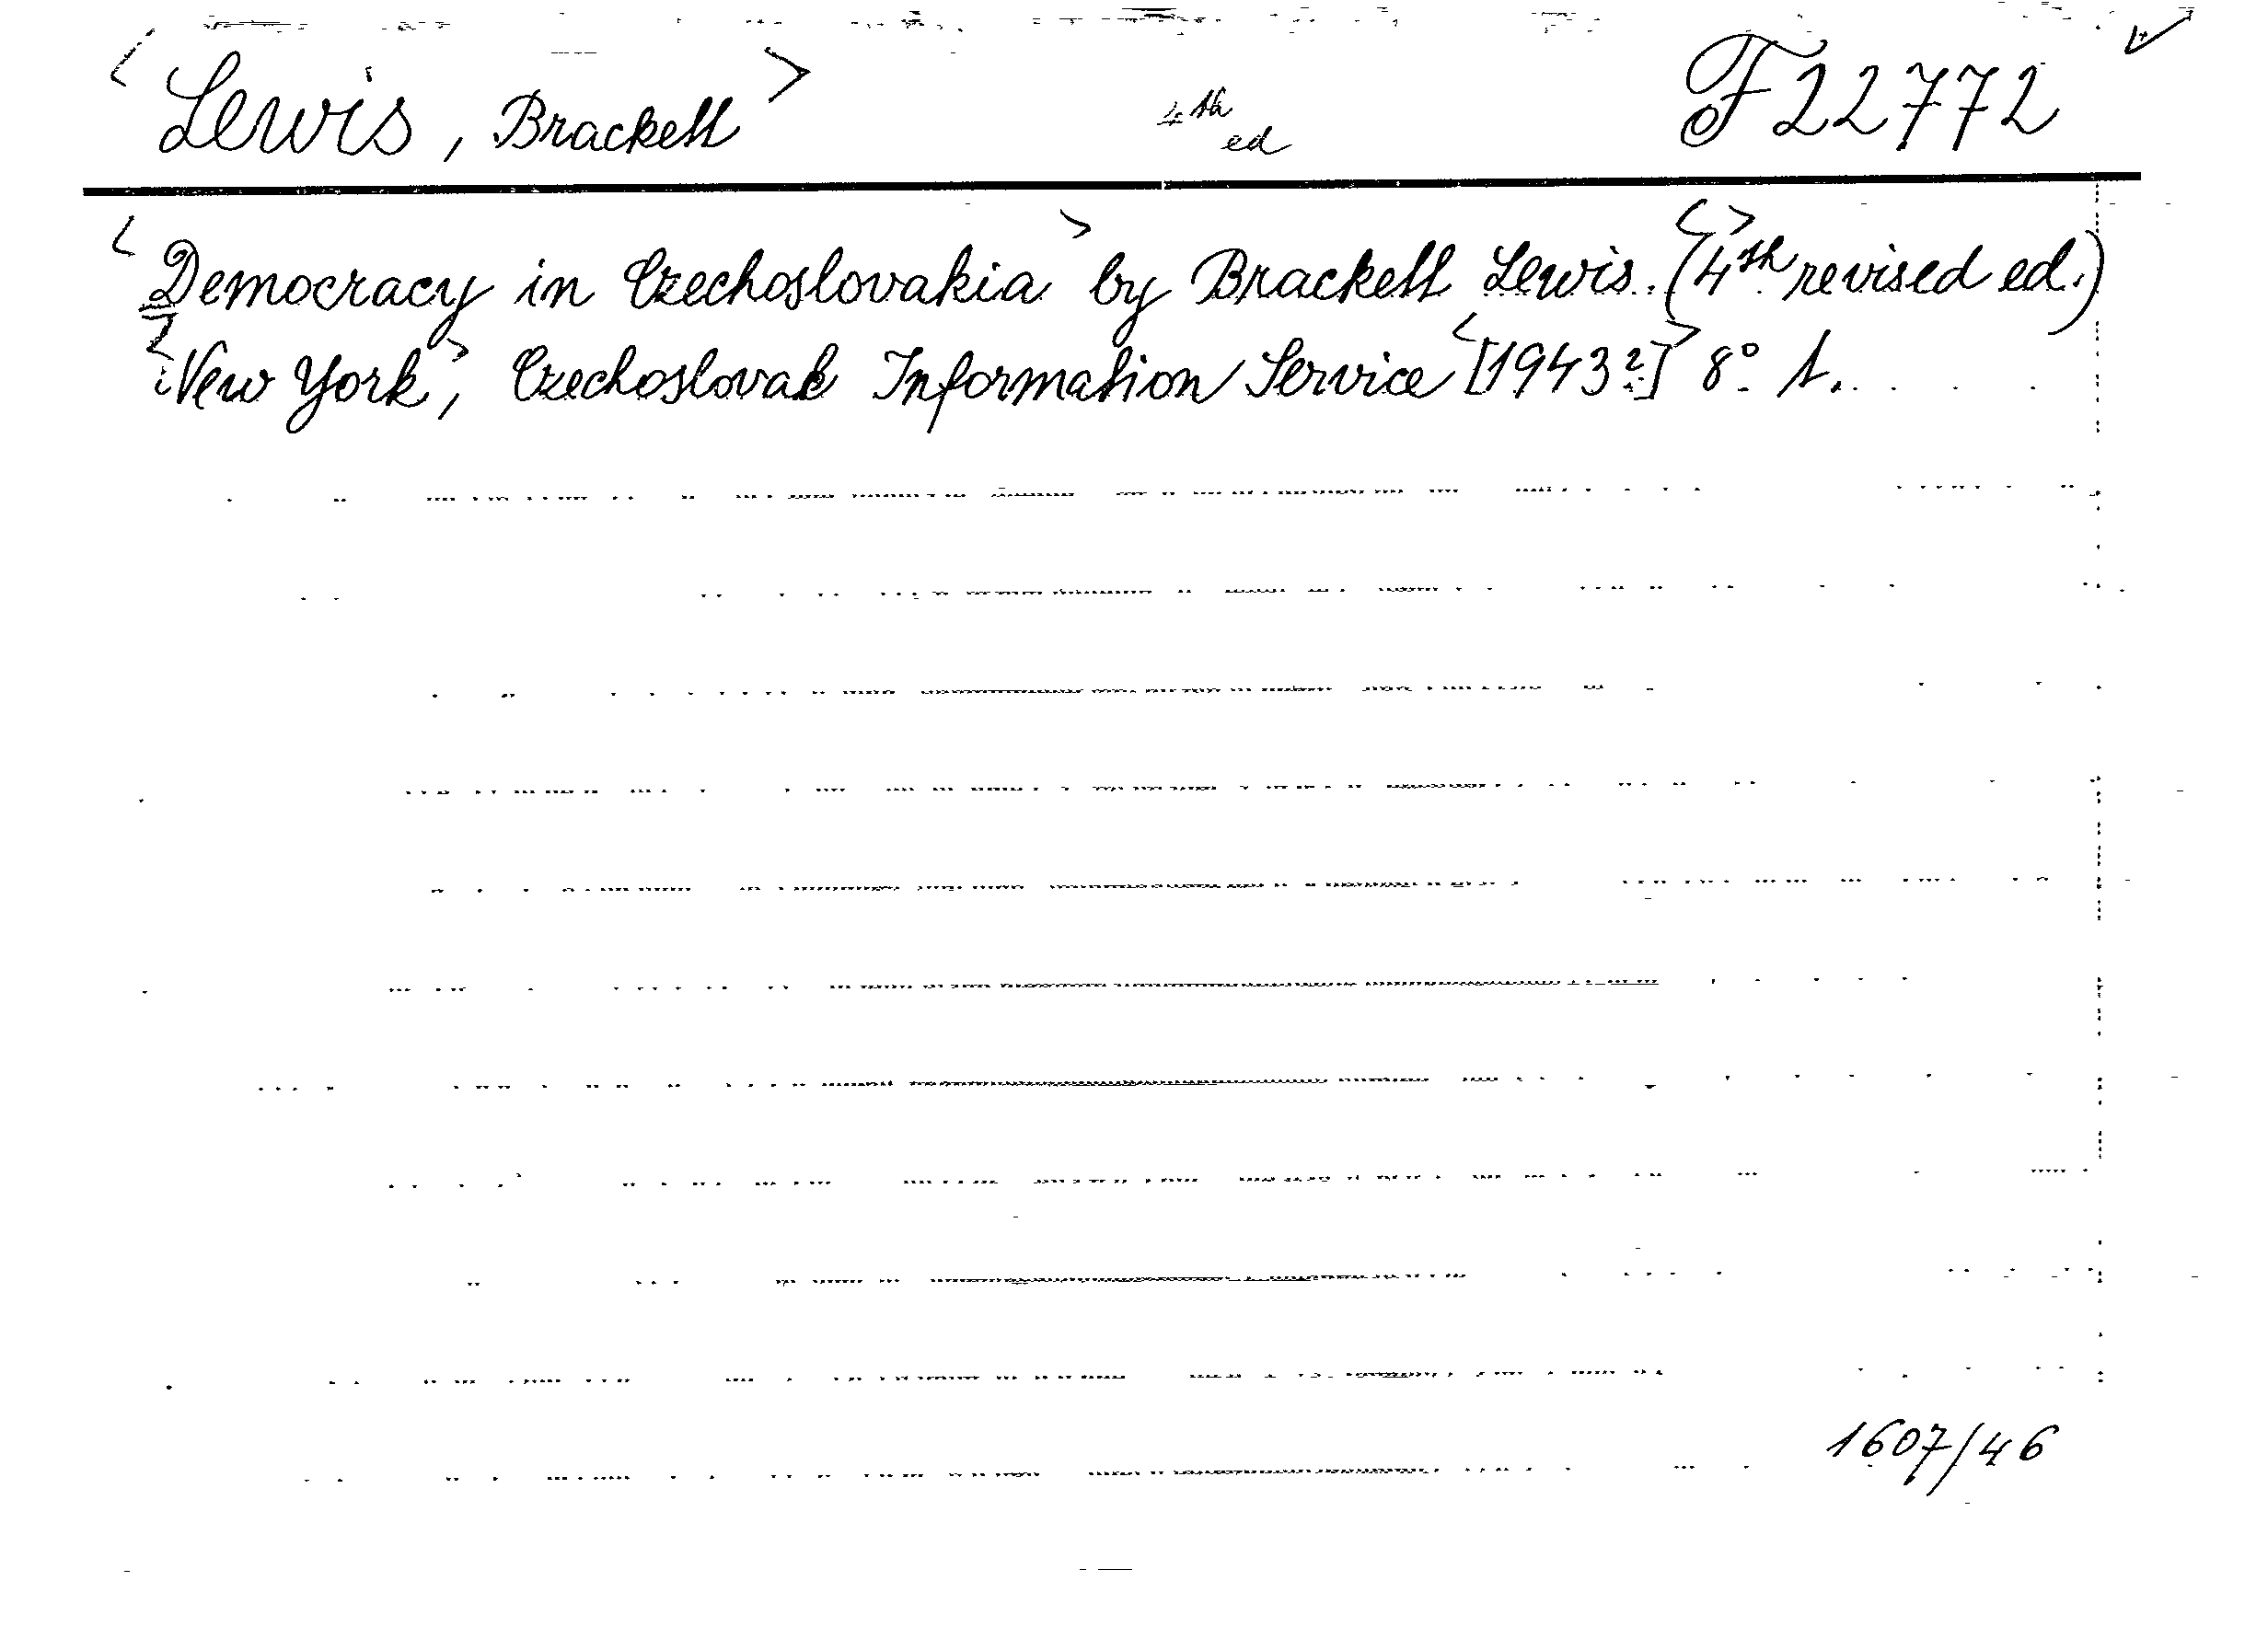 <Lewis, Brackett> 4th ed F 22772
<Democracy in Czechoslovakia> by Brackett Lewis. (<4th> revised ed.)
<New York>, Czechoslovak Information Service <[1943?]> 8° 1.
1607/46